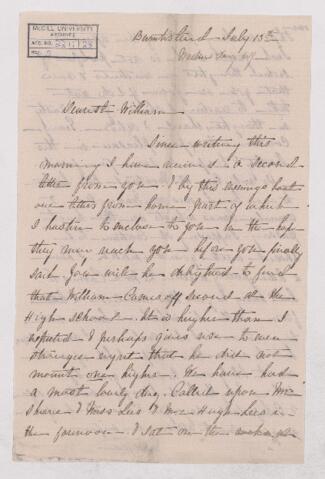 McGILL UNIVERSITY
ARCHIVES
ACC. NO.
REF.
July 13th
Dearest William
Since writing this
morning I have received a second
letter from you & by this evenings boat
one letter from home part of which
I hasten to enclose to you in the hope
they may reach you before you finally
sail. You will be delighted to find
that William came off second at the
High school. It is higher than I
expected & perhaps gives rise to even
stronger regret that he did not
mount one higher. We have had
a most lovely day. Called upon Mrs
& Miss Lees & Mrs Hugh Lees in
the forenoon & sat on the